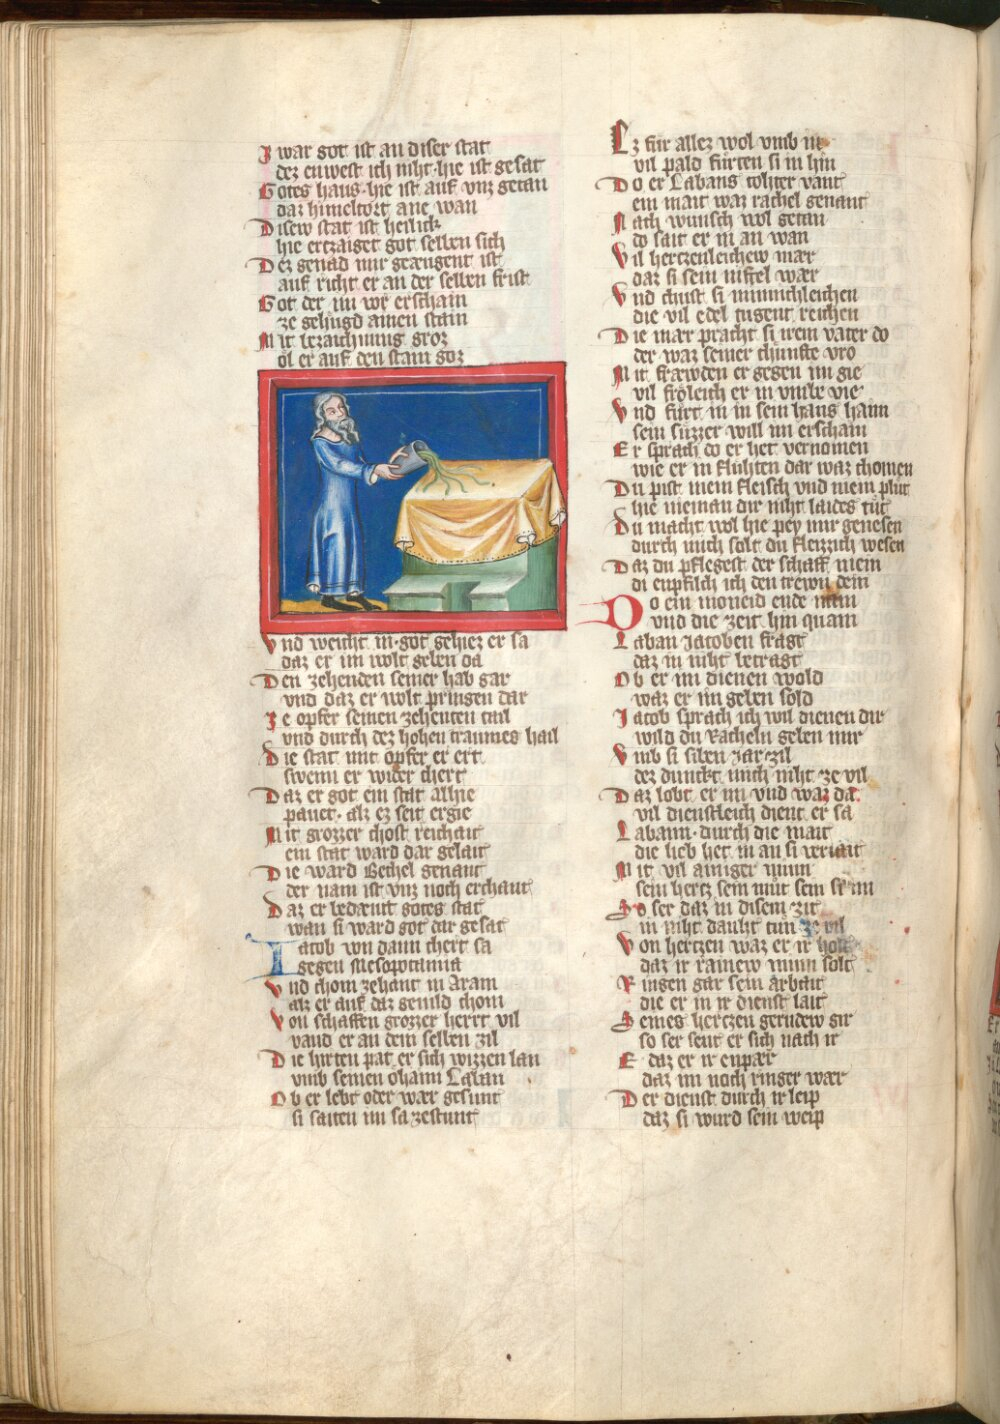 Z war got ist an diser stat
dez enwest ich niht hie ist gesat
Gotes haus hie ist auf vnz getan
daz himeltort ane wan
Disew stat ist heilich
hie ertzaiget got selben sich
Der genad mir geaugent ist
auf richt er an der selben frist
Got der im wz erschain
ze gehugd ainen stain
Mit bezaichnung groz
ol er auf den stain goz
vnd weicht in. got gehiez er sa
daz er im wolt geben da
Den zehenden seiner hab gar
vnd daz er wolt pringen dar
Ze opfer seinen zehenten tail
vnd durch dez hohen traumes hail
Die stat mit opfer er ert
swenn er wider chert
Daz er got ein stat alhie
pawet. alz ez seit ergie
Mit grozzer chost reichait
ein stat ward dar gelait
Die ward Bethel genant
der nam ist vnz noch erchant
Daz er bedæut gotes stat
wan si ward got dar gesat
Iacob von dann chert sa
gegen Mesopotamia
Vnd chom zehant in Aram
alz er auf daz gevild chom
Von schaffen grozzer herrt vil
vand er an dem selben zil
Die hirten pat er sich wizzen lan
vmb seinen ohaim Laban
Ob er lebt oder wær gesunt
si saiten im sa zestunt
Ez für allez wol vmb in
vil pald fürten si in hin
Do er Labans tohter vant
ein mait waz rachel genant
Nach wunsch wol getan
do sait er in an wan
Vil hertzenleichew mær
daz si sein niftel wær
Vnd chust si minnichleichen
die vil edel tugent reichen
Die mær pracht si irem vater do
der waz seiner chünfte vro
Mit fræwden er gegen im gie
vil frölich er in vmbe vie
Vnd fürt in in sein haus haim
sein süzzer will im erschain
Er sprach do er het vernomen
wie er in fluhten dar waz chomen
Du pist mein fleisch vnd mein plüt
hie nieman dir niht laides tüt
Du macht wol hie pey mir genesen
durch mich solt du fleizzich wesen
Daz du pflegest der schaff mein
di enpfilch ich den trewn dein
Do ein moneid ende nam
vnd die zeit hin quam
Laban Jacoben fragt
daz in niht betragt
Ob er im dienen wold
waz er im geben sold
Jacob sprach ich wil dienen dir
wild du Racheln geben mir
Vmb si siben jar zil
dez dunckt mich niht ze vil
Daz lobt er im vnd waz da
vil dienstleich dient er sa
Labann. durch die mait
die lieb het in an si veriait
Mit vil ainiger minn
sein hertz sein müt sein sinn
So ser daz in disem zit
in niht dauht tun ze vil
Von hertzen waz er ir holt
daz ir rainew minn solt
Ringen gar sein arbait
die er in ir dienst lait
Seines hertzen gerndew gir
so ser sent er sich nach ir
E daz er ir enpær
daz im noch ringer wær
Der dienst durch ir leip
daz si wurd sein weip